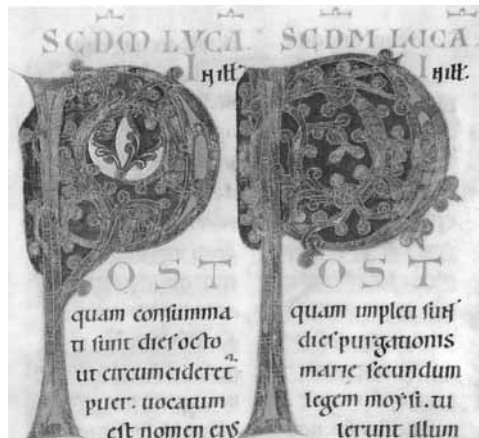 SCDM LVCA.
I
N ill'.
POST
quam consumma
ti sunt dies octo
ut circumcideret
puer. uocatum
est nomen eius
SCDM LUCA
I
N ill'.
POST
quam impleti sunt
dies purgationis
marie secundum
legem moysi. tu
lerunt illum